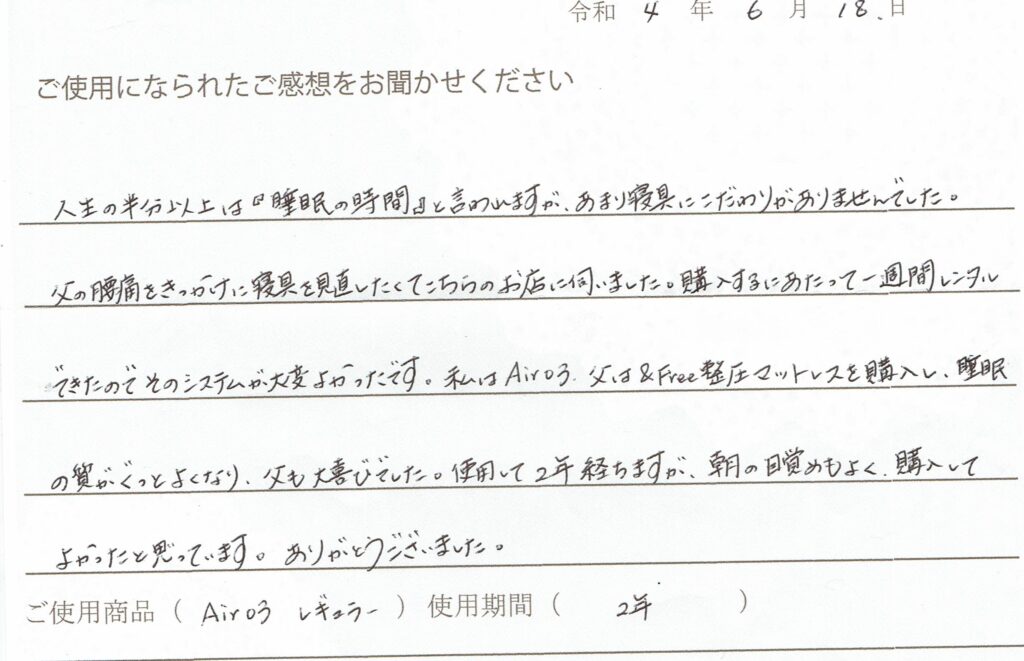 令和 4 年 6 月 18.日
ご使用になられたご感想をお聞かせください
人生の半分以上は『睡眠の時間』と言われますが、あまり寝具にこだわりがありませんでした。
父の腰痛をきっかけに寝具を見直したくてこちらのお店に伺いました。購入するにあたって一週間レンタル
できたのでそのシステムが大変よかったです。私はAir03.父は&Free整圧マットレスを購入し、睡眠
の質がぐっとよくなり、父も大喜びでした。使用して2年経ちますが、朝の目覚めもよく、購入して
よかったと思っています。ありがとうございました。
ご使用商品（ Air03 レギュラー ）使用期間（ 2年 ）